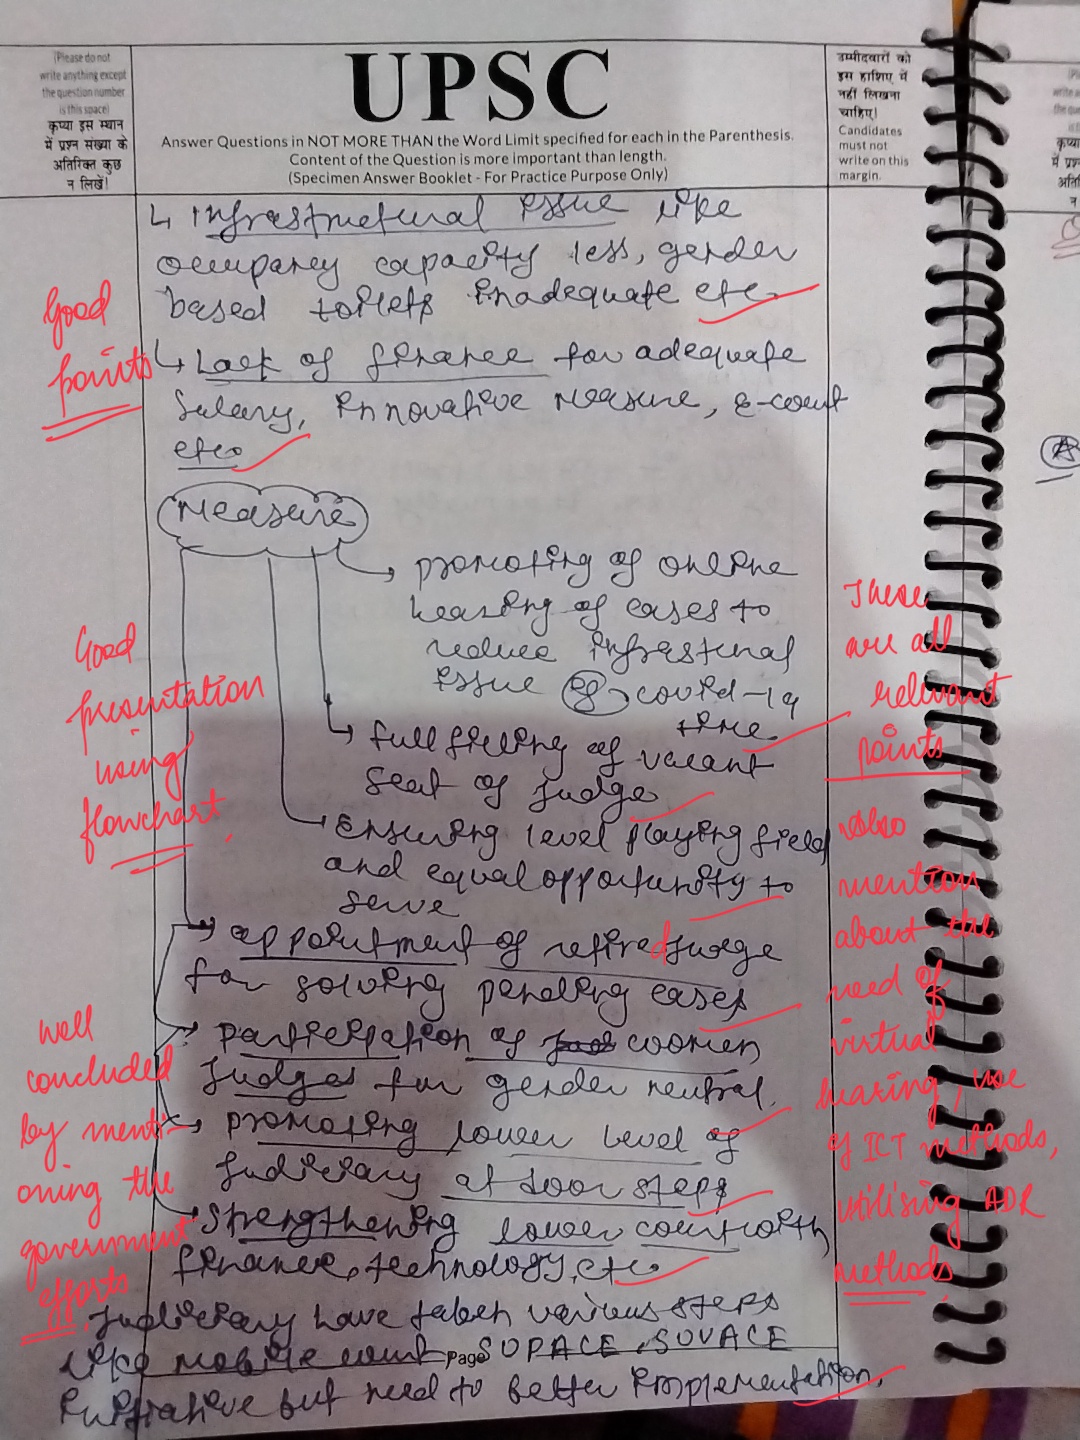 (Please do not
write anything except
the question number
is this space)
कृप्या इस स्थान
में प्रश्न संख्या के
अतिरिक्त कुछ
न लिखें!
UPSC
Answer Questions in NOT MORE THAN the Word Limit specified for each in the Parenthesis.
Content of the Question is more important than length.
(Specimen Answer Booklet - For Practice Purpose Only)
उम्मीदवारों को
इस हाशिए में
नहीं लिखना
चाहिए।
Candidates
must not
write on this
margin.
↳ Infrastructural issue like
occupancy capacity less, gender
based toilets inadequate etc.
Good
points
↳ Lack of finance for adequate
Salary, innovative measure, e-court
etc.
Measure
promoting of online
hearing of cases to
reduce infrastural
issue eg covid-19
time
fullfilling of vacant
seat of judge
Ensuring level playing field
and equal opportunity to
serve
appointment of retired judge
for solving pending cases
participation of women
judges for gender neutral.
promoting lower level of
judiciary at door steps
Strengthening lower court with
finance, technology, etc.
Good
presentation
using
flowchart.
These
are all
relevant
points
Also
mention
about the
need of
virtual
hearing, use
of ICT methods,
utilising ADR
methods.
Well
concluded
by menti-
oning the
government
efforts
Judiciary have taken various steps
like mobile court, SUPACE, SUVACE
initiative but need to better implementation.
Page